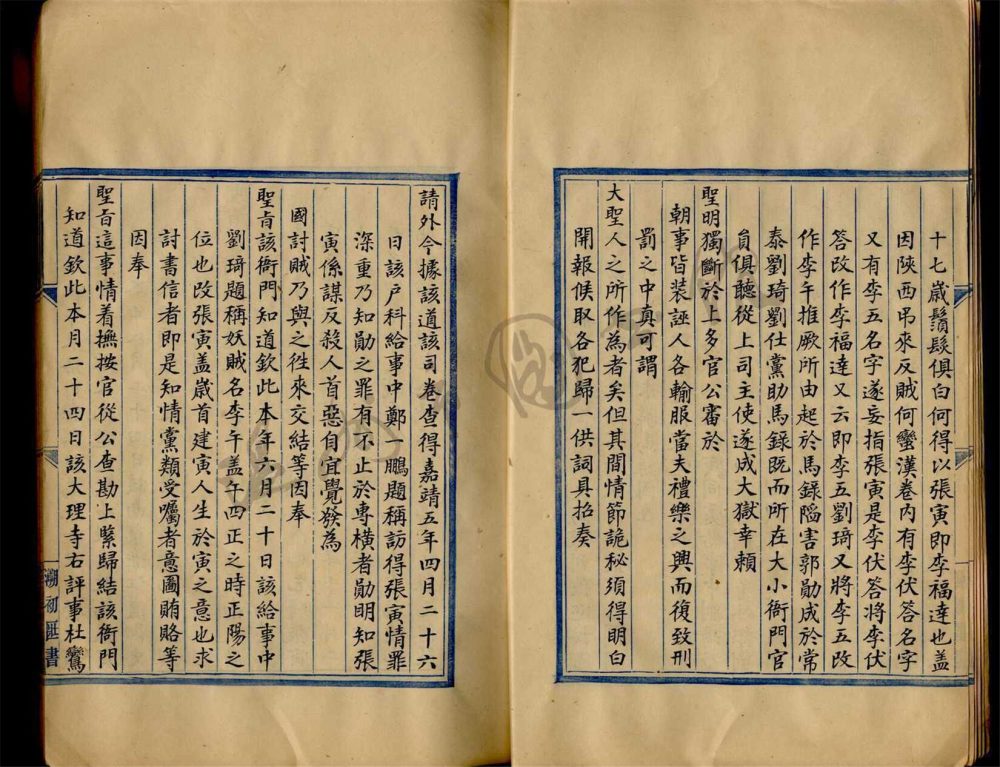 十七歲鬚髮俱白何得以張寅即李福達也盖
因陝西吊來反賊何蠻漢卷内有李伏答名字
又有李五名字遂妄指張寅是李伏答將李伏
答改作李福達又云即李五劉琦又將李五改
作李午推厥所由起於馬録陷害郭勛成於常
泰劉琦劉仕黨助馬録既而所在大小衙門官
員俱聽從上司主使遂成大獄幸賴
聖明獨斷於上多官公審於
朝事皆装誣人各輸服當夫禮樂之興而復致刑
罰之中真可謂
大聖人之所作為者矣但其間情節詭秘須得明白
開報候取各犯歸一供詞具招奏
請外今據該道該司卷查得嘉靖五年四月二十六
日該户科給事中鄭一鵬題稱訪得張寅情罪
深重乃知勛之罪有不止於專横者勛明知張
寅係謀反殺人首惡自宜覺發為
國討賊乃與之徃來交結等因奉
聖旨該衙門知道欽此本年六月二十日該給事中
劉琦題稱妖賊名李午盖午四正之時正陽之
位也改張寅盖歲首建寅人生於寅之意也求
討書信者即是知情黨類受囑者意圖賄賂等
因奉
聖旨這事情着撫按官從公查勘上緊歸結該衙門
知道欽此本月二十四日該大理寺右評事杜鸞
初匯書